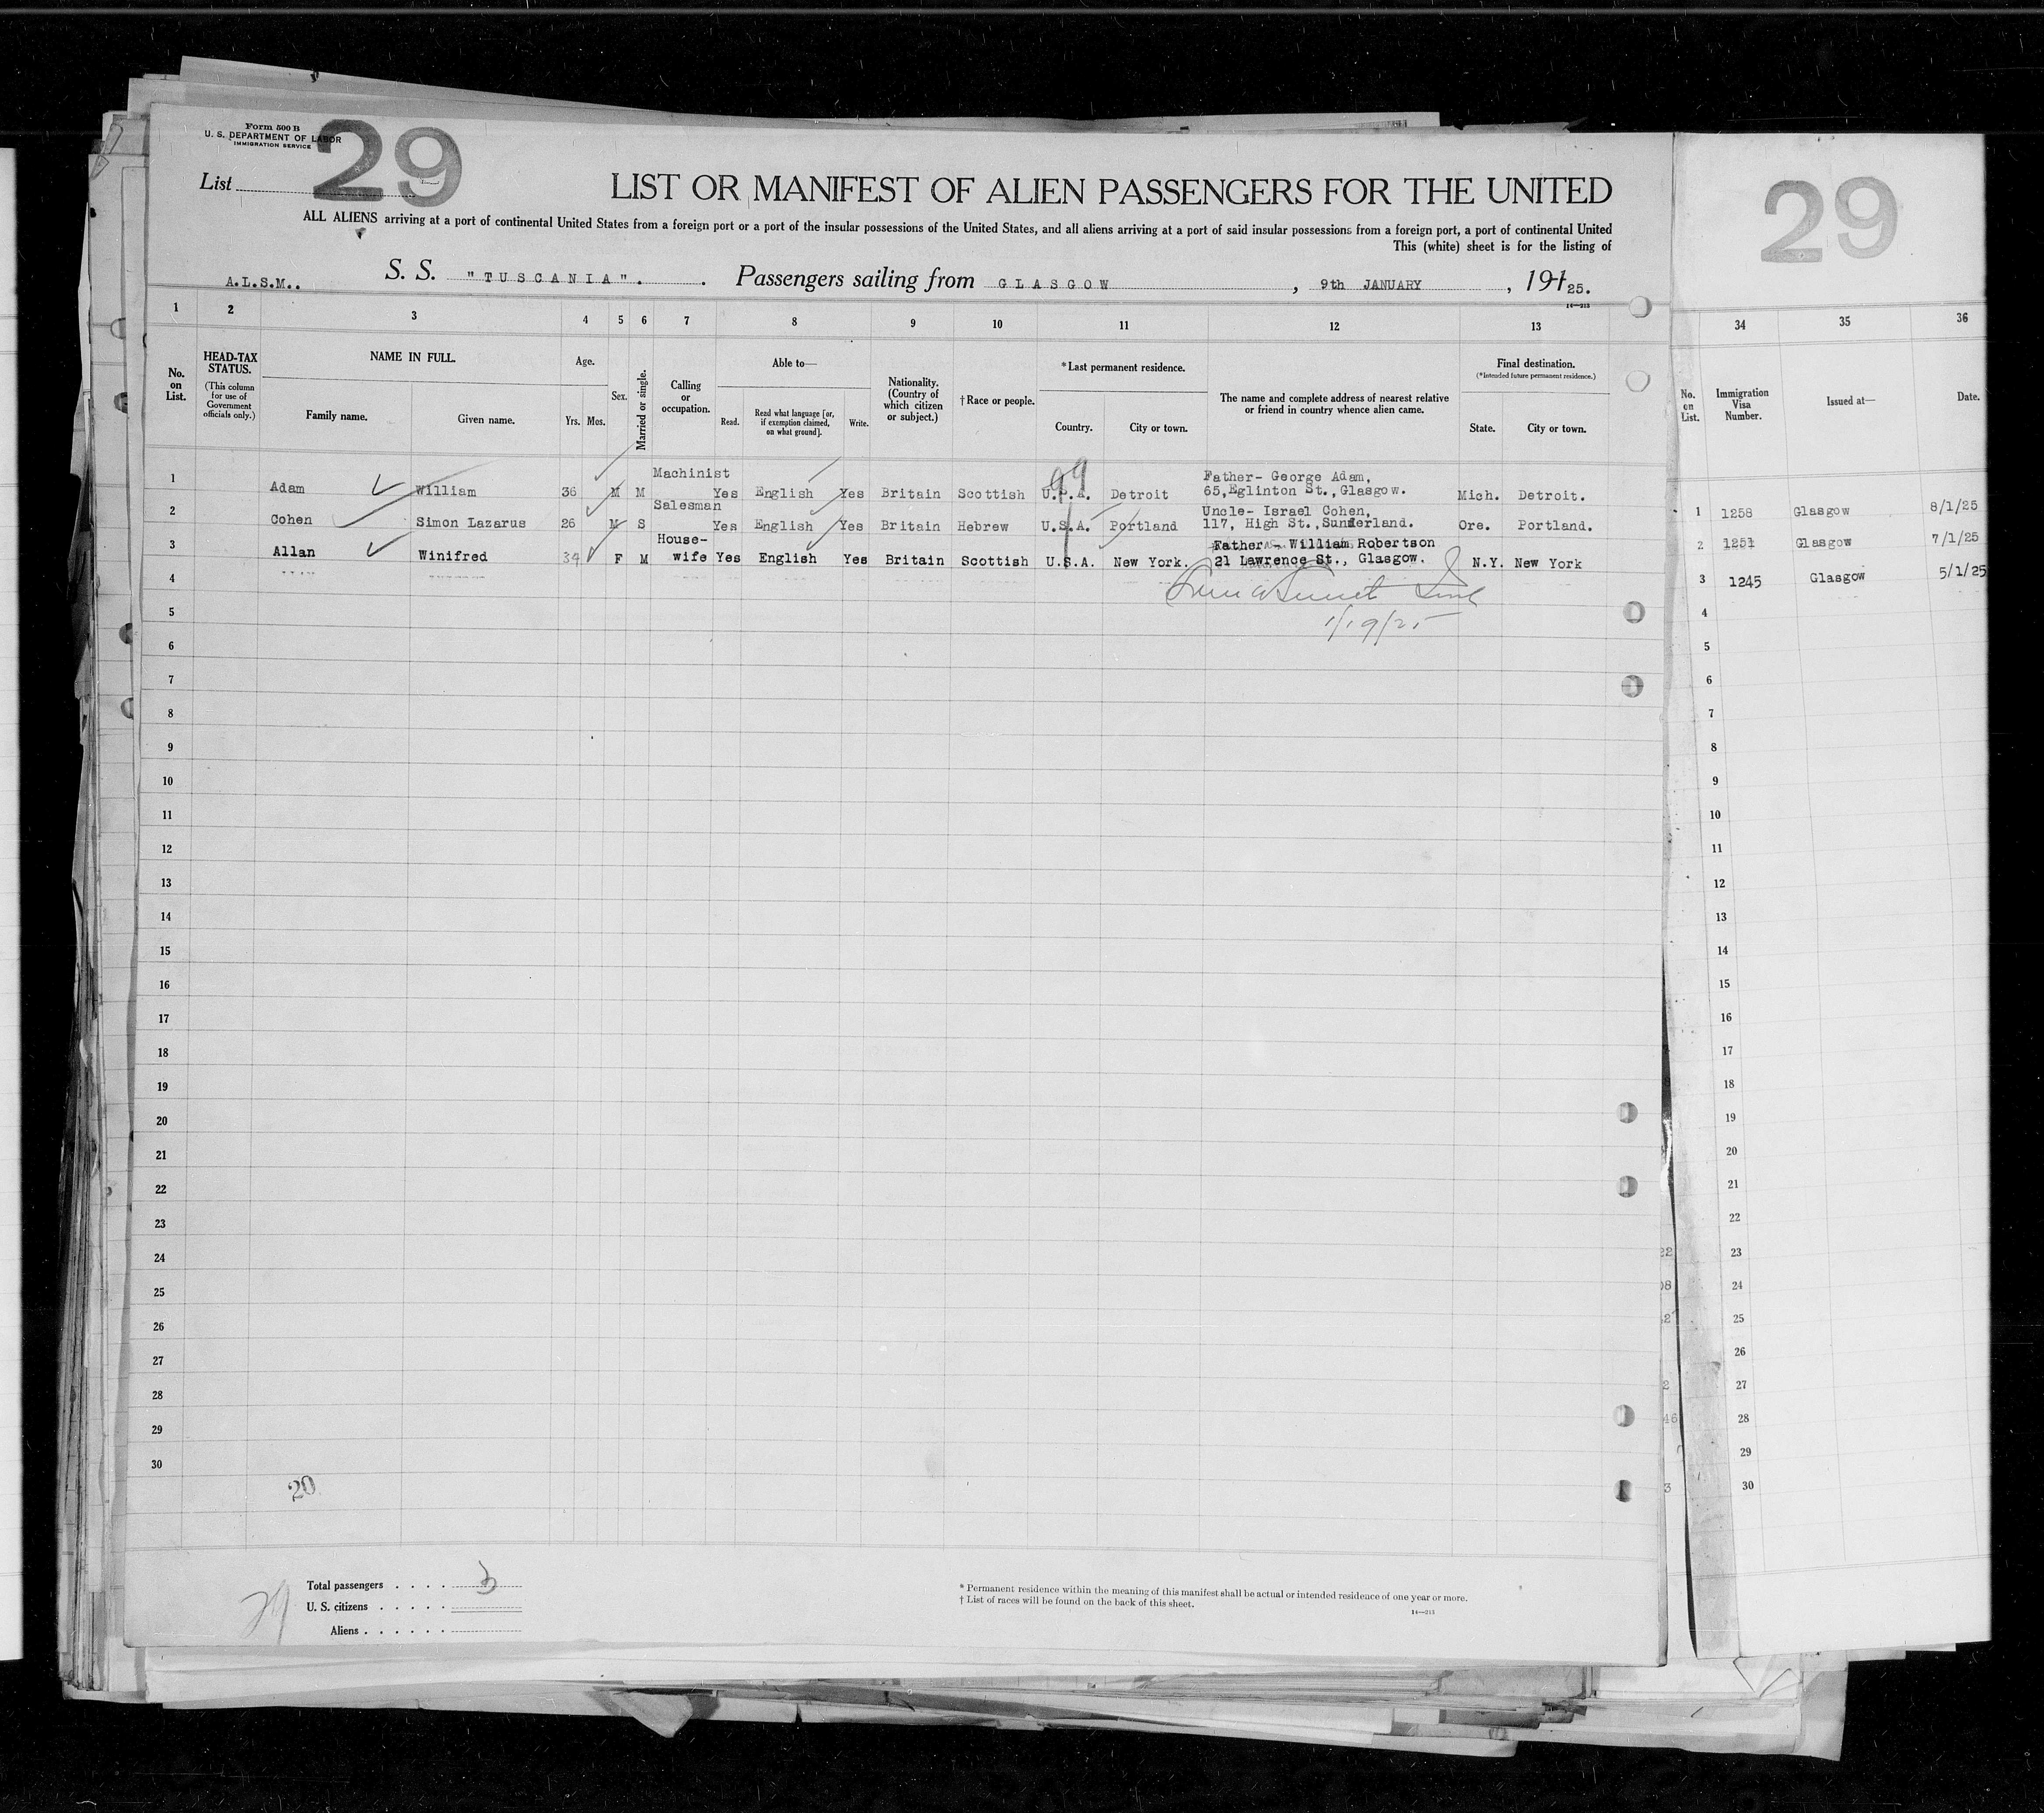 Form 500 B
U. S. DEPARTMENT OF LABOR
IMMIGRATION SERVICE
29
List
LIST OR MANIFEST OF ALIEN PASSENGERS FOR THE UNITED
ALL ALIENS arriving at a port of continental United States from a foreign port or a port of the insular possessions of the United States, and all aliens arriving at a port of said insular possessions from a foreign port, a port of continental United
This (white) sheet is for the listing of
A.L.S.M.. S. S. "TUSCANIA". Passengers sailing from GLASGOW, 9th JANUARY, 19125.
14—213
1 2 3 4 5 6 7 8 9 10 11 12 13
No. on List.
HEAD-TAX STATUS.
(This column for use of Government officials only.)
NAME IN FULL.
Family name. Given name.
Age.
Yrs. Mos.
Sex.
Married or single.
Calling or occupation.
Able to—
Read. Read what language [or, if exemption claimed, on what ground]. Write.
Nationality. (Country of which citizen or subject.)
† Race or people.
*Last permanent residence.
Country. City or town.
The name and complete address of nearest relative or friend in country whence alien came.
Final destination.
(*Intended future permanent residence.)
State. City or town.
99
1 Adam William 36 M M Machinist Yes English Yes Britain Scottish U.S.A. Detroit Father- George Adam, 65,Eglinton St.,Glasgow. Mich. Detroit.
2 Cohen Simon Lazarus 26 M S Salesman Yes English Yes Britain Hebrew U.S.A. Portland Uncle- Israel Cohen, 117, High St.,Sunderland. Ore. Portland.
3 Allan Winifred 34 F M House-wife Yes English Yes Britain Scottish U.S.A. New York. Father - William Robertson 21 Lawrence St., Glasgow. N.Y. New York
4
1/19/25
5
6
7
8
9
10
11
12
13
14
15
16
17
18
19
20
21
22
23
24
25
26
27
28
29
30
20
29
Total passengers . . . . 3
U. S. citizens . . . . .
Aliens . . . . . .
* Permanent residence within the meaning of this manifest shall be actual or intended residence of one year or more.
† List of races will be found on the back of this sheet.
14—213
29
34 35 36
No. on List.
Immigration Visa Number.
Issued at—
Date.
1 1258 Glasgow 8/1/25
2 1251 Glasgow 7/1/25
3 1245 Glasgow 5/1/25
4
5
6
7
8
9
10
11
12
13
14
15
16
17
18
19
20
21
22
23
24
25
26
27
28
29
30